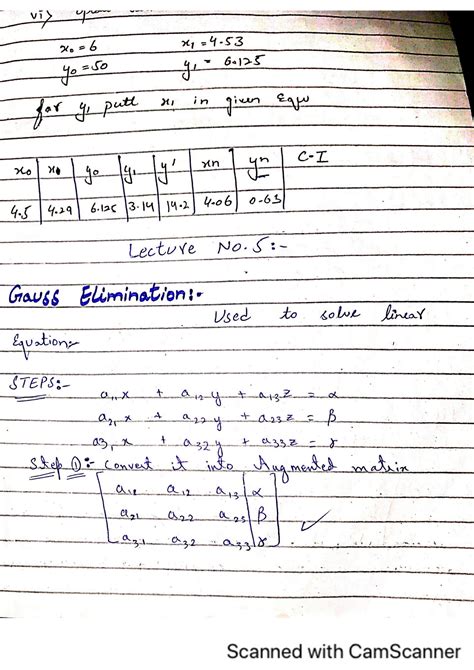 vi)
x₀ = 6 x₁ = 4.53
y₀ = 50 y₁ = 6.125
for y₁ putt x₁ in given Equ
x₀ | x₁ | y₀ | y₁ | y' | xn | yn | C-I
4.5 | 4.29 | 6.125 | 3.14 | 14.2 | 4.06 | 0.63
Lecture No. 5:-
Gauss Elimination:-
Used to solve linear
Equation:-
STEPS:-
a₁₁x + a₁₂y + a₁₃z = α
a₂₁x + a₂₂y + a₂₃z = β
a₃₁x + a₃₂y + a₃₃z = γ
Step ①:- Convert it into Augmented matrix
[a₁₁ a₁₂ a₁₃ | α
a₂₁ a₂₂ a₂₃ | β
a₃₁ a₃₂ a₃₃ | γ]
Scanned with CamScanner